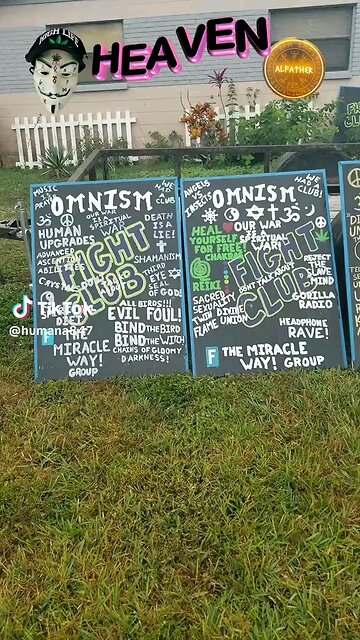 HIGH LIFE
HEAVEN
ALFATHER
MUSIC
OMNISM
WE
HAVE
A CLUB!
OUR WAR
IS A
SPIRITUAL
WAR
HUMAN
UPGRADES
ADVANCED
ABILITIES
DEATH
IS A
LIE!
SHAMANISM
FIGHT
CLUB
THIRD
EYE
SEAL
OF GOD!
DIET
ALL BIRDS!!!
EVIL FOUL!
BIND THE BIRD
BIND THE WITCH
CHAINS OF GLOOMY
DARKNESS!
THE
MIRACLE
WAY!
GROUP
ANGELS
VS
INSECTS
OMNISM
WE
HAVE A
CLUB!
HEAL
YOURSELF
FOR FREE!
CHAKRAS
OUR WAR
IS A
SPIRITUAL
WAR!
REIKI
FIGHT
CLUB
DON'T TALK ABOUT
REJECT
THE
SLAVE
MIND
GORILLA
RADIO
SACRED
SEXUALITY
TWIN DIVINE
FLAME UNION
HEADPHONE
RAVE!
THE MIRACLE
WAY! GROUP
TikTok
@humana847